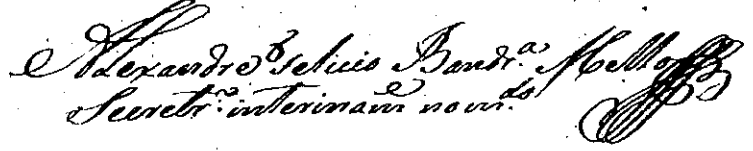 Alexandre Felicio Bandr.ª Mello
Secretr.º interinam.e nom.do